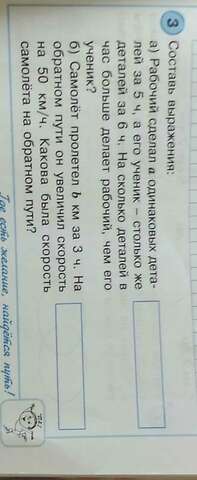 3 Составь выражения:
а) Рабочий сделал a одинаковых дета-
лей за 5 ч, а его ученик – столько же
деталей за 6 ч. На сколько деталей в
час больше делает рабочий, чем его
ученик?
б) Самолёт пролетел b км за 3 ч. На
обратном пути он увеличил скорость
на 50 км/ч. Какова была скорость
самолёта на обратном пути?
Где есть желание, найдётся путь!